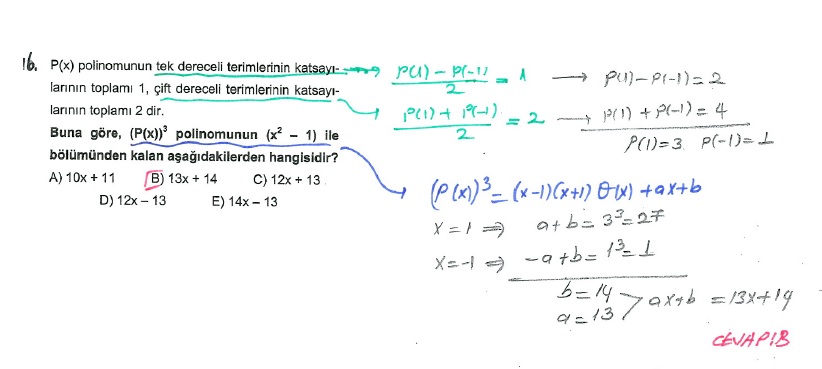 16. P(x) polinomunun tek dereceli terimlerinin katsayı-
larının toplamı 1, çift dereceli terimlerinin katsayı-
larının toplamı 2 dir.
Buna göre, (P(x))³ polinomunun (x² – 1) ile
bölümünden kalan aşağıdakilerden hangisidir?
A) 10x + 11 B) 13x + 14 C) 12x + 13
D) 12x – 13 E) 14x – 13
(P(1) – P(-1))/2 = 1 → P(1) – P(-1) = 2
(P(1) + P(-1))/2 = 2 → P(1) + P(-1) = 4
P(1)=3 P(-1)=1
(P(x))³ = (x-1)(x+1) Q(x) + ax+b
x = 1 ⇒ a+b = 3³ = 27
x = -1 ⇒ -a+b = 1³ = 1
b = 14
a = 13 > ax+b = 13x+14
CEVAP B